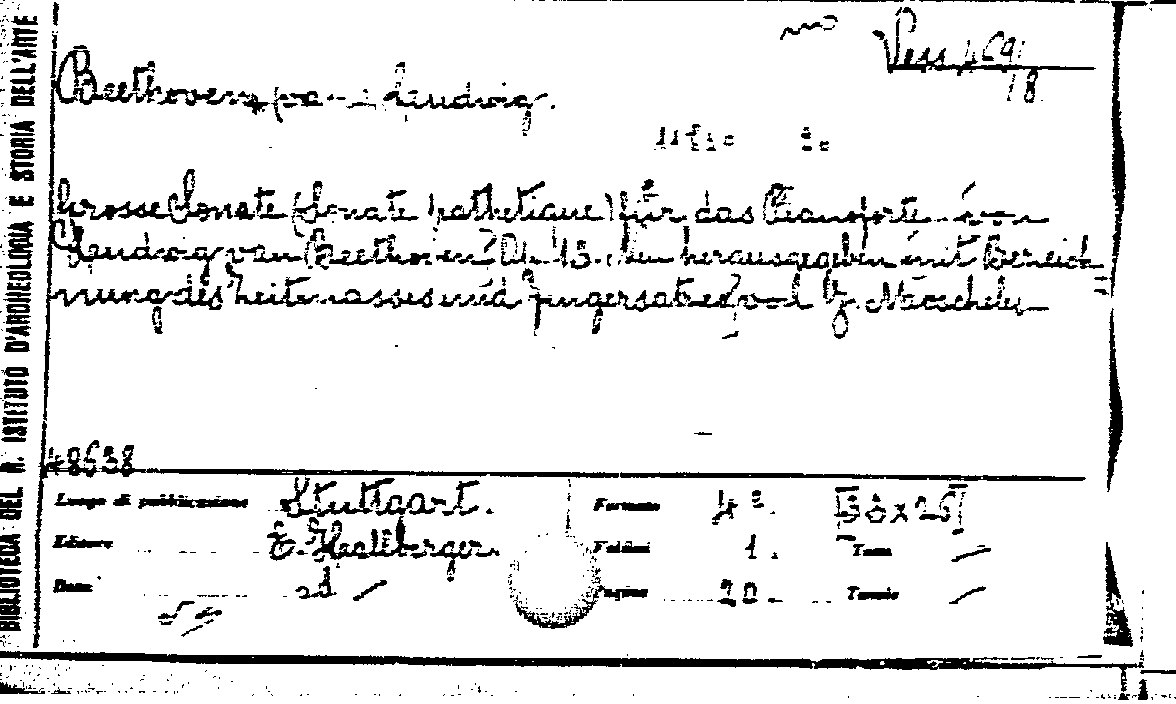 BIBLIOTECA DEL R. ISTITUTO D'ARCHEOLOGIA E STORIA DELL'ARTE
Vess 469/8
Beethoven, van, Ludwig.
Grosse Sonate (Sonate pathetique) für das Pianoforte von
Ludwig van Beethoven, Op. 13. Neu herausgegeben mit Bezeich
nung des Zeitmasses und Fingersatzes von I. Moscheles
48638
Luogo di pubblicazione Stuttgart. Formato 4º. [33x26]
Editore E. Hallberger. Volumi 1. Tomi —
Data sd — Pagine 20. Tavole —